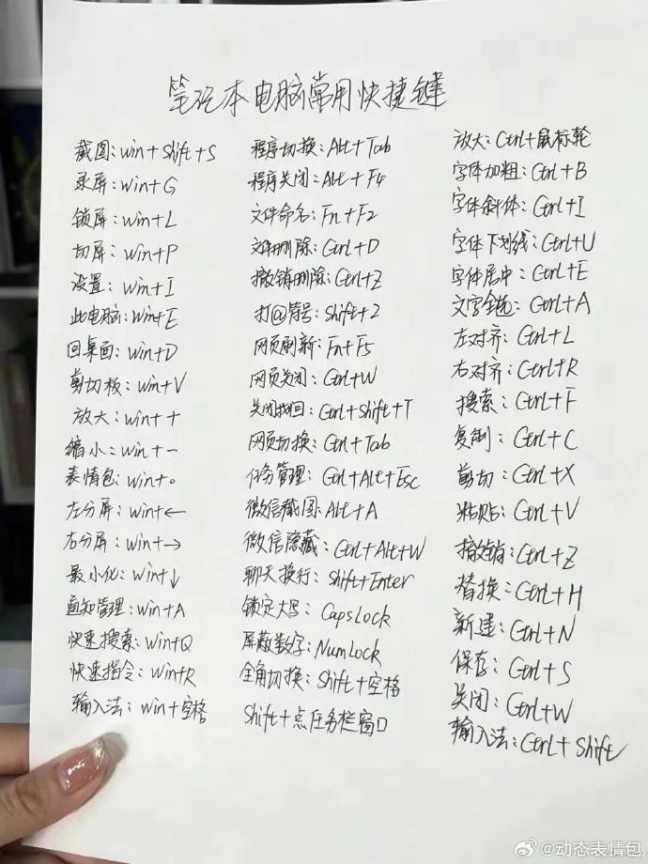 笔记本电脑常用快捷键
截图:win+shift+S
录屏:win+G
锁屏:win+L
切屏:win+P
设置:win+I
此电脑:win+E
回桌面:win+D
剪切板:win+V
放大:win++
缩小:win+-
表情包:win+。
左分屏:win+←
右分屏:win+→
最小化:win+↓
通知管理:win+A
快速搜索:win+Q
快速指令:win+R
输入法:win+空格
程序切换:Alt+Tab
程序关闭:Alt+F4
文件命名:Fn+F2
文件删除:Ctrl+D
撤销删除:Ctrl+Z
打@符号:Shift+2
网页刷新:Fn+F5
网页关闭:Ctrl+W
关闭找回:Ctrl+Shift+T
网页切换:Ctrl+Tab
任务管理:Ctrl+Alt+Esc
微信截图:Alt+A
微信隐藏:Ctrl+Alt+W
聊天换行:Shift+Enter
锁定大写:CapsLock
屏蔽数字:NumLock
全角切换:Shift+空格
Shift+点任务栏窗口
放大:Ctrl+鼠标轮
字体加粗:Ctrl+B
字体斜体:Ctrl+I
字体下划线:Ctrl+U
字体居中:Ctrl+E
文字全选:Ctrl+A
左对齐:Ctrl+L
右对齐:Ctrl+R
搜索:Ctrl+F
复制:Ctrl+C
剪切:Ctrl+X
粘贴:Ctrl+V
撤销:Ctrl+Z
替换:Ctrl+H
新建:Ctrl+N
保存:Ctrl+S
关闭:Ctrl+W
输入法:Ctrl+Shift
@动态表情包